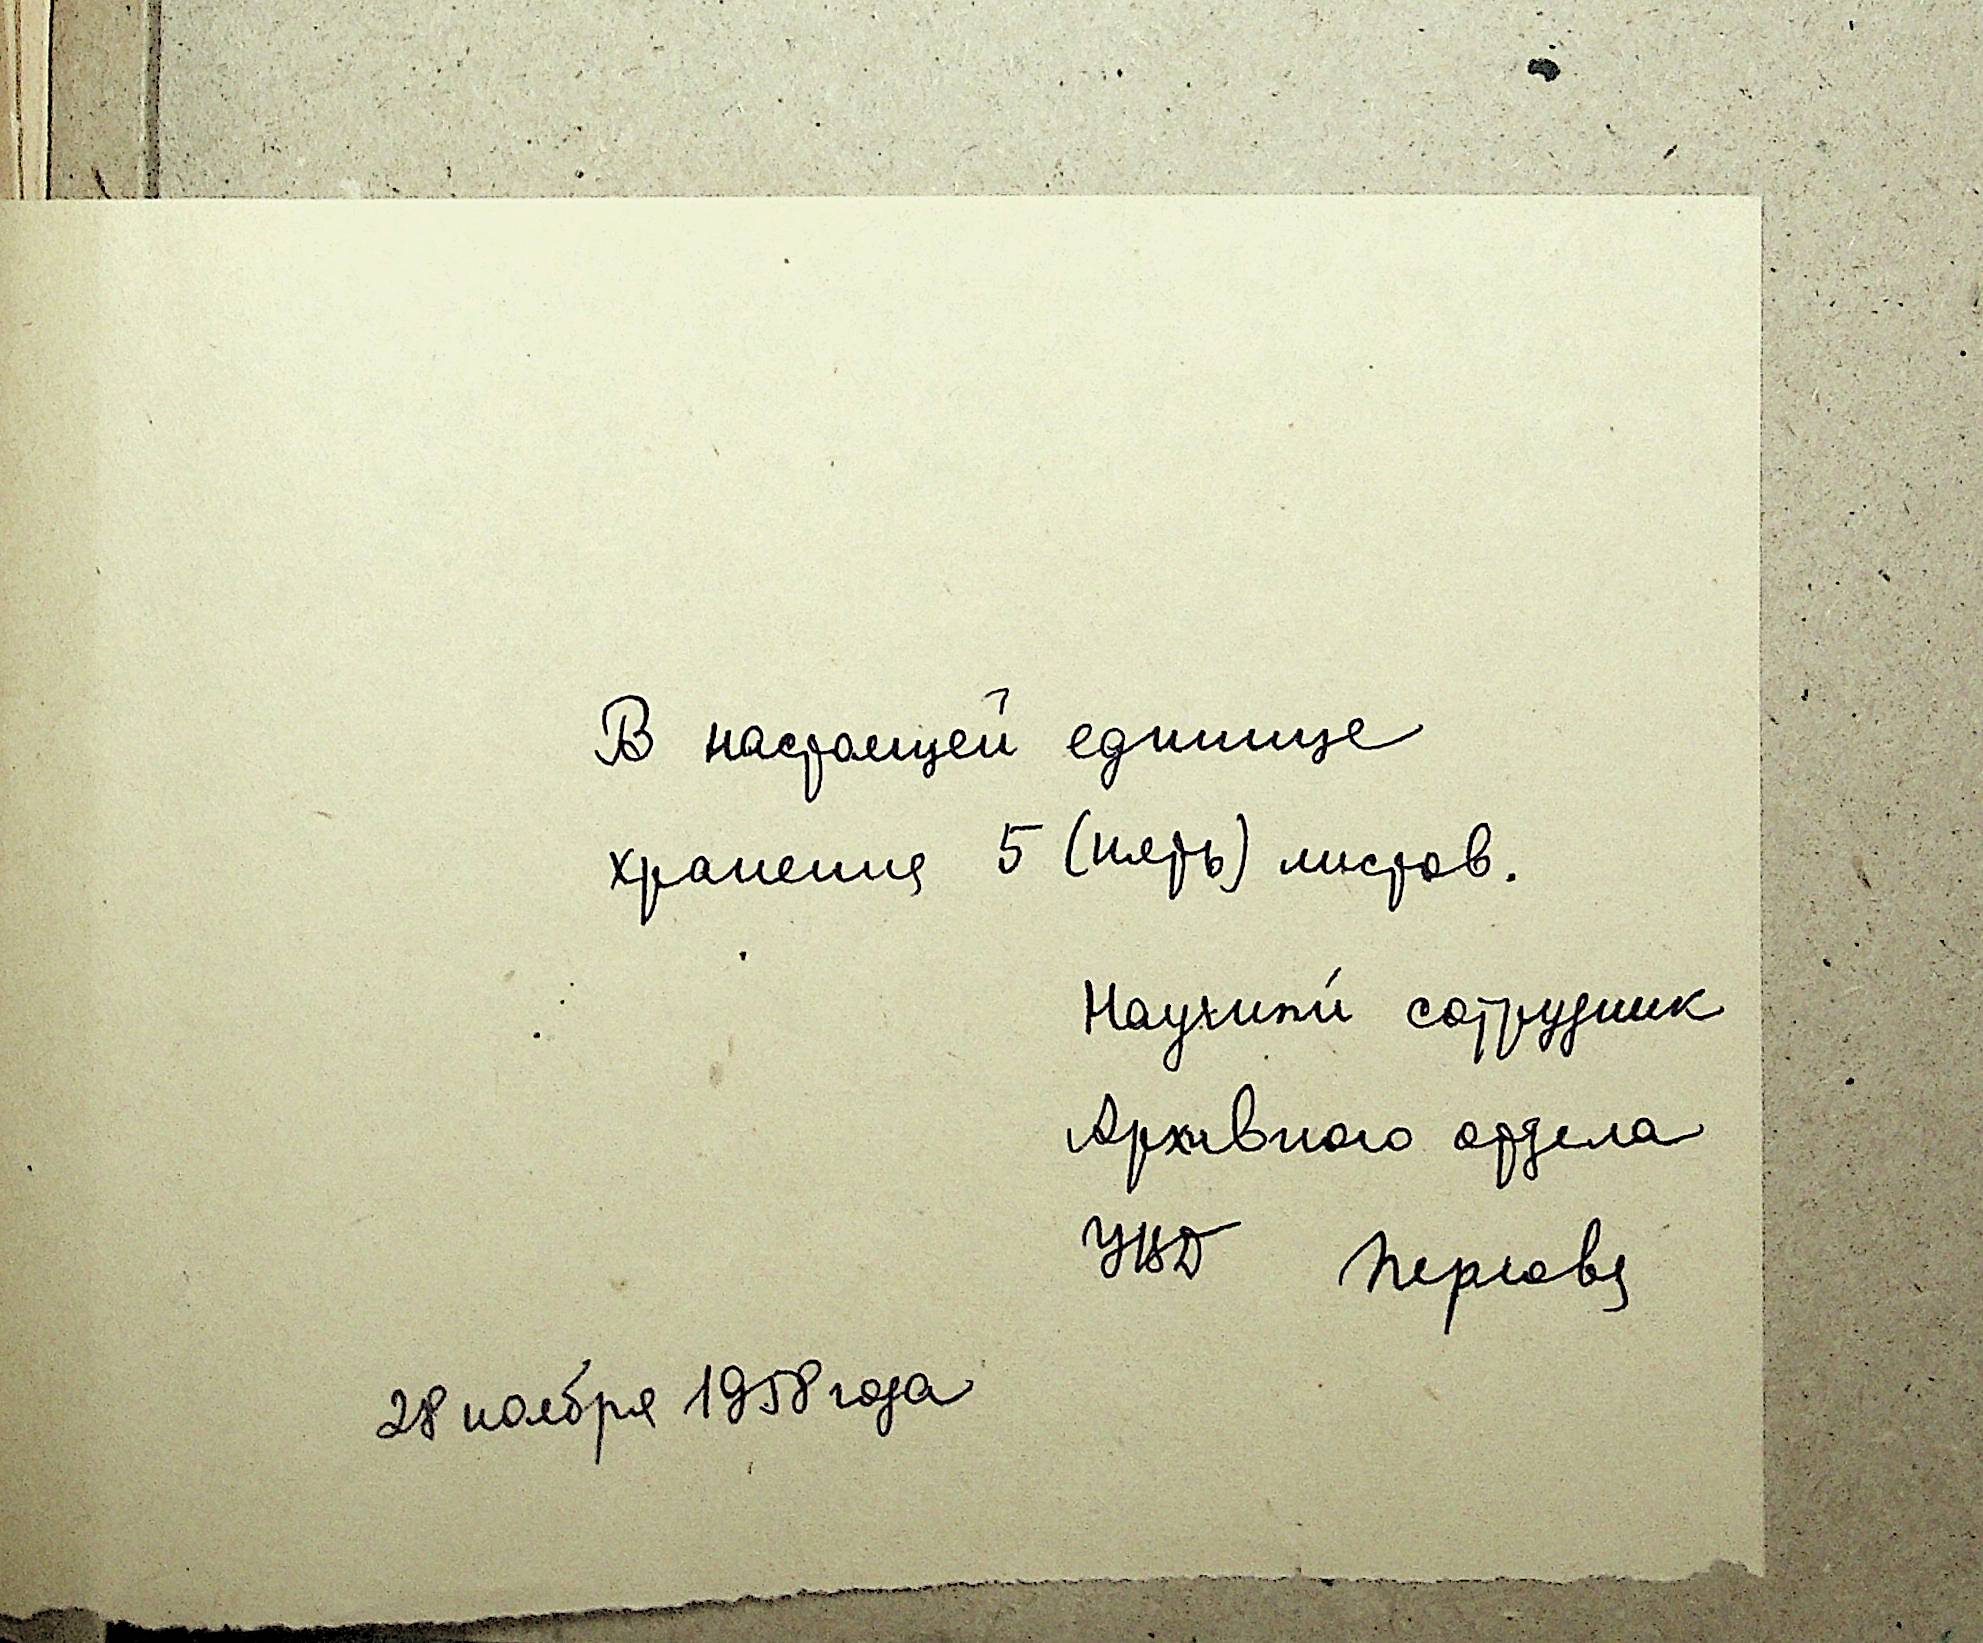 В настоящей единице
хранения 5 (пять) листов.
Научный сотрудник
Архивного отдела
УВД
28 ноября 1958 года